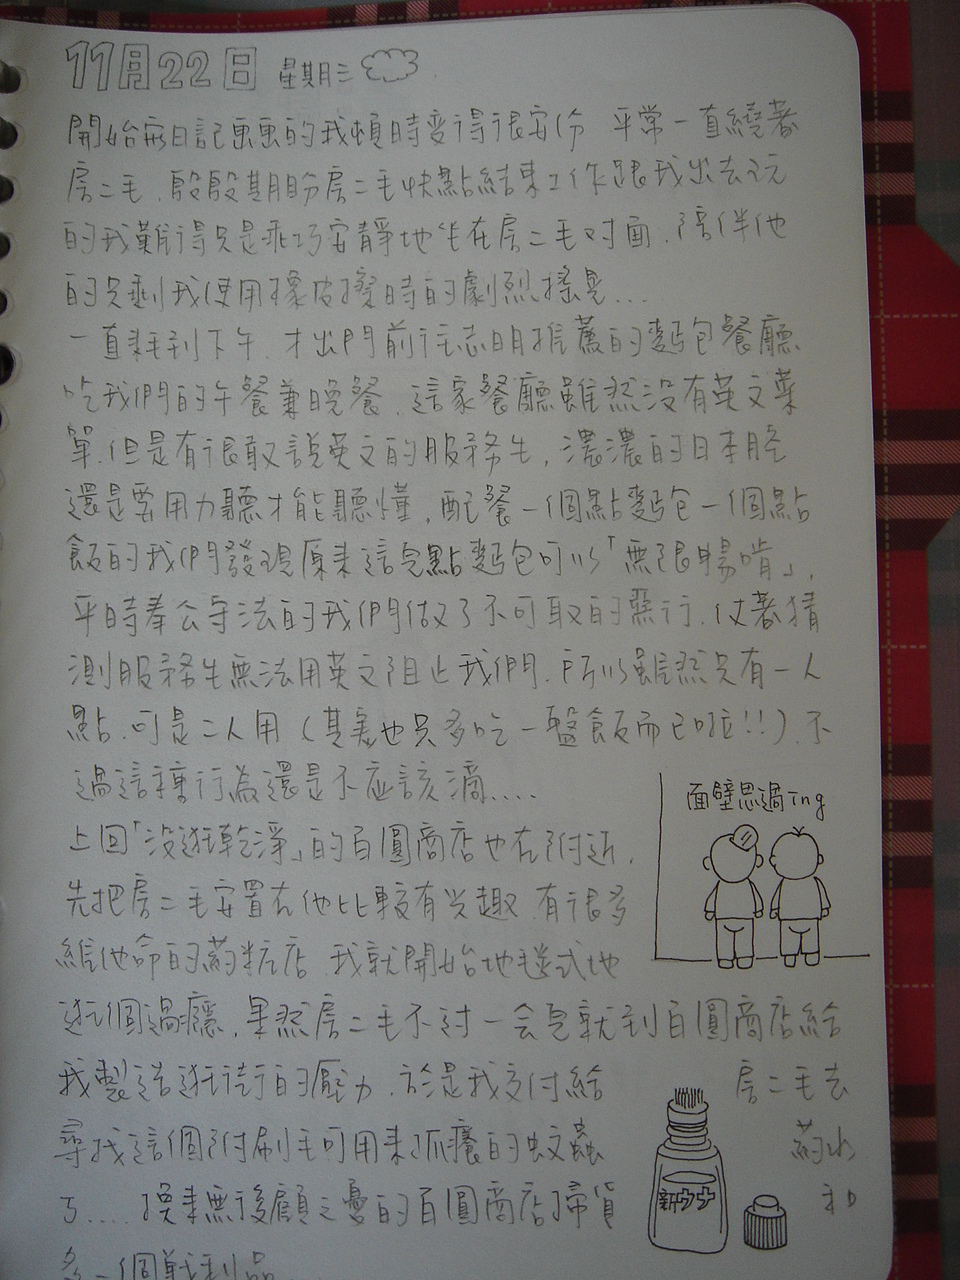 11月22日 星期三
開始在日記畫畫的我頓時變得很安份 平常一直繞著
房二毛，殷殷期盼房二毛快點結束工作跟我出去玩
的我難得只是乖巧安靜地坐在房二毛对面，陪伴他
的只剩我使用橡皮擦時的劇烈搖晃...
一直耗到下午，才出門前往志明推薦的麵包餐廳
吃我們的午餐兼晚餐，這家餐廳雖然没有英文菜
單，但是有很敢說英文的服務生，濃濃的日本腔
還是要用力聽才能聽懂，配餐一個點麵包一個點
飯的我們發現原来這兒點麵包可以「無限暢啃」，
平時奉公守法的我們做了不可取的惡行，仗著猜
測服務生無法用英文阻止我們，所以雖然只有一人
點，可是二人用（其實也只多吃一盤飯而已啦!!），不
過這種行為還是不應該滴....
面壁思過ing
上回「没逛乾淨」的百圓商店也在附近，
先把房二毛安置在他比較有兴趣，有很多
維他命的葯粧店，我就開始地毯式地
逛個過癮，果然房二毛不过一会兒就到百圓商店給
我製造逛街的壓力，於是我交付給 房二毛去
尋找這個附刷毛可用来抓癢的蚊蟲 葯水
了....換来無後顧之憂的百圓商店掃貨 和
多一個戦利品
新ウナ